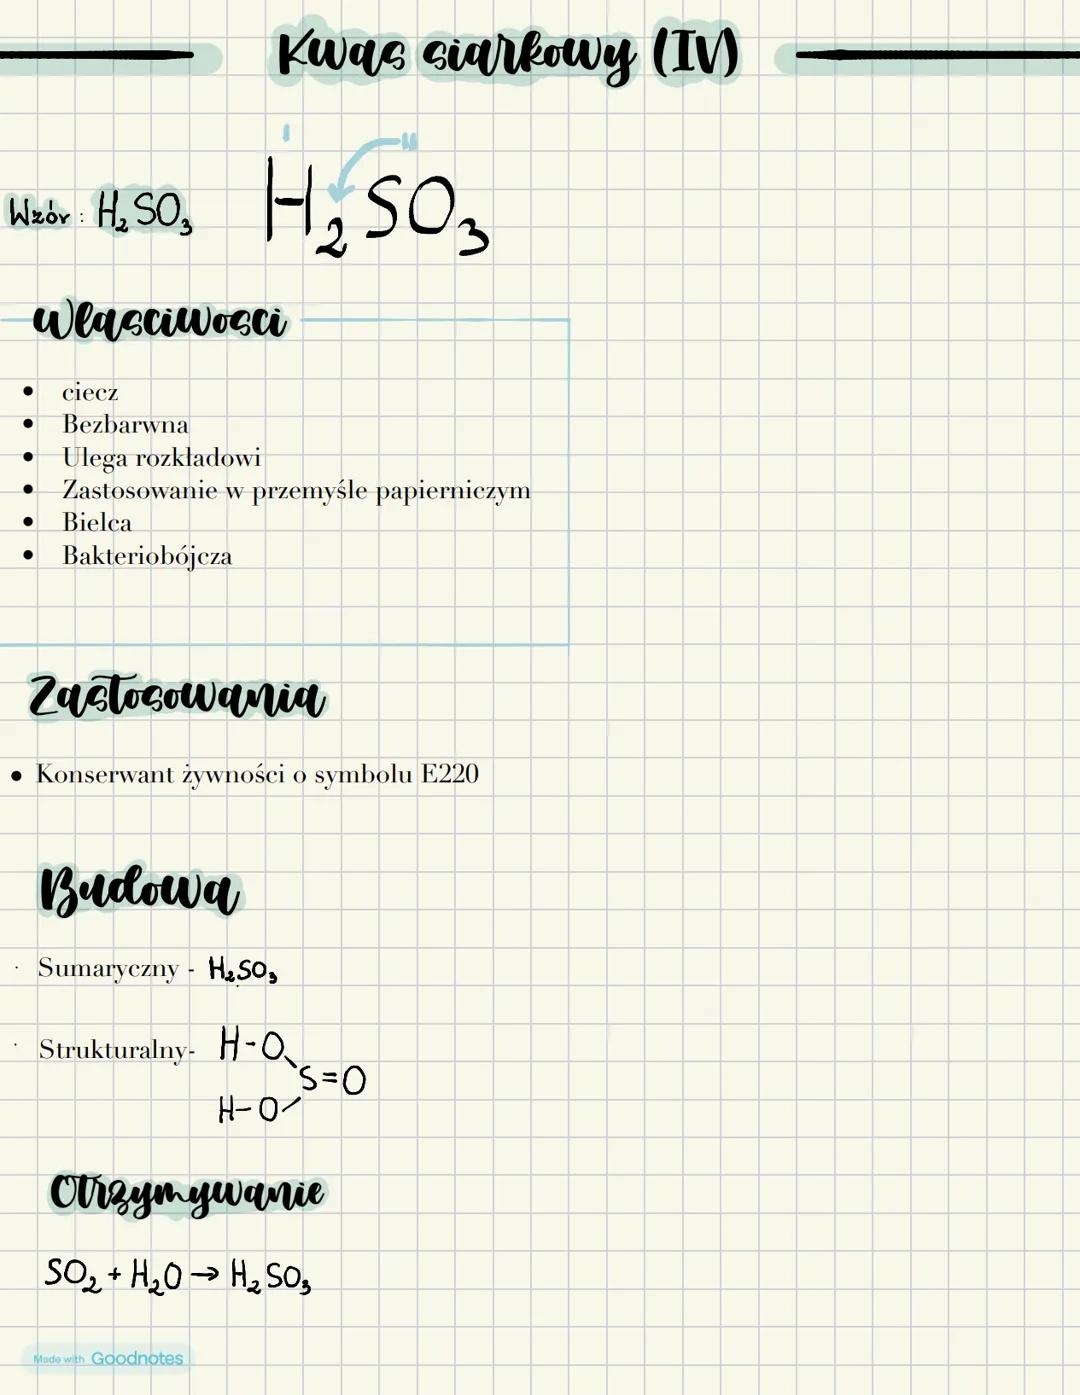 Kwas siarkowy (IV)
I II
Wzór : H₂SO₃ H₂SO₃
Właściwości
• ciecz
• Bezbarwna
• Ulega rozkładowi
• Zastosowanie w przemyśle papierniczym
• Bielca
• Bakteriobójcza
Zastosowania
• Konserwant żywności o symbolu E220
Budowa
· Sumaryczny - H₂SO₃
· Strukturalny- H-O
S=O
H-O
Otrzymywanie
SO₂ + H₂O → H₂SO₃
Made with Goodnotes